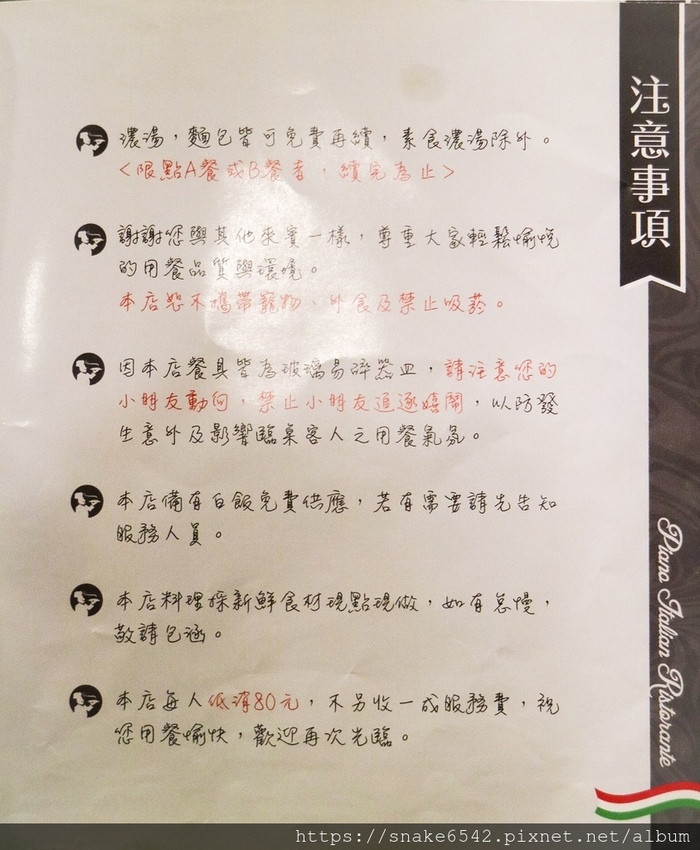 注意事項
濃湯，麵包皆可免費再續，素食濃湯除外。
<限點A餐或B餐者，續完為止>
謝謝您與其他來賓一樣，尊重大家輕鬆愉悅
的用餐品質與環境。
本店恕不攜帶寵物、外食及禁止吸菸。
因本店餐具皆為玻璃易碎器皿，請注意您的
小朋友動向，禁止小朋友追逐嬉鬧，以防發
生意外及影響臨桌客人之用餐氣氛。
本店備有白飯免費供應，若有需要請先告知
服務人員。
本店料理採新鮮食材現點現做，如有怠慢，
敬請包涵。
本店每人低消80元，不另收一成服務費，祝
您用餐愉快，歡迎再次光臨。
Piano Italian Ristorante
https://snake6542.pixnet.net/album